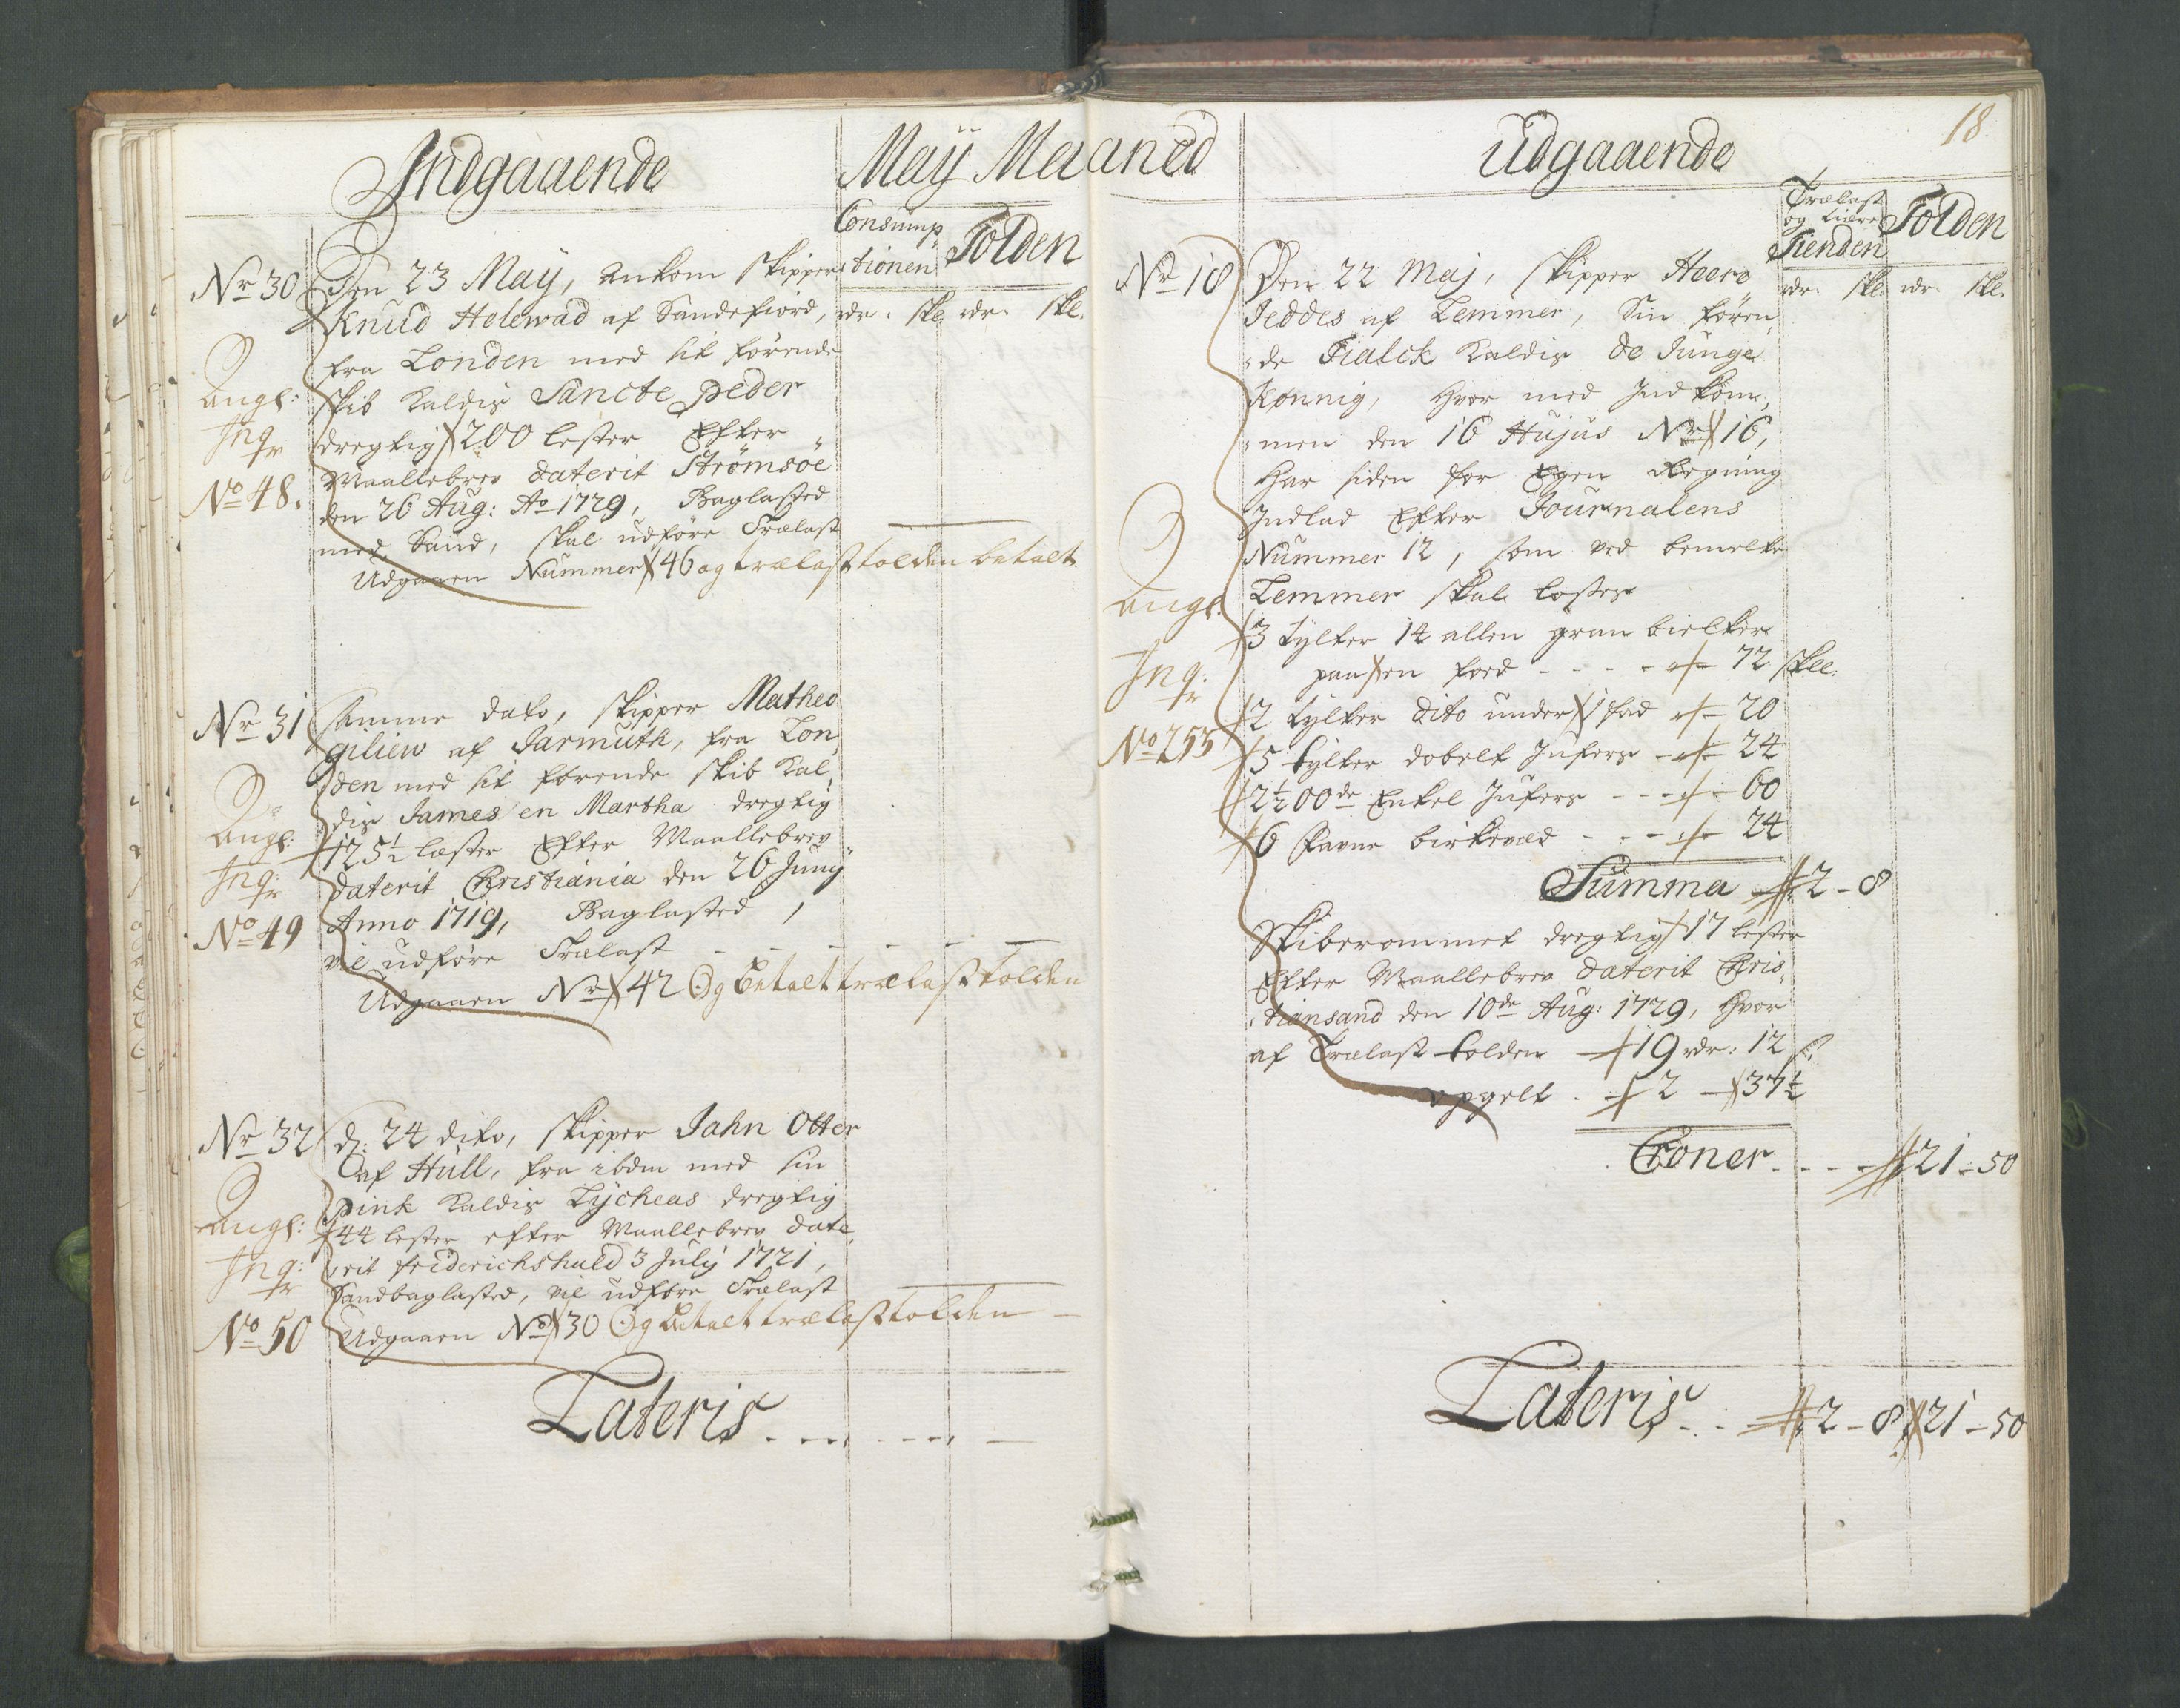 Indgaaende
May Maaned
Consump
tionen
Tolden
rdr. skl. rdr. skl.
Nr 30
Den 23 May, Ankom Skipper
Knud Holewad af Sandefiord,
fra Londen med sit förende
Skib Kaldis Sancte Peder
dregtig 200 lester Efter
Maallebrev daterit Strömsöe
den 26 Aug: Ao 1729, Baglasted
med Sand, skal udföre Trælast
Udgaaen Nummer 46 og trælasttolden betalt
Angl:
Inqr
No 48.
Nr 31
Samme dato, Skipper Matheo
Giliew af Jarmuth, fra Lon
den med sit förende Skib Kal,
dis James en Martha dregtig
125½ læster Efter Maallebrev
daterit Christiania den 26 Junij
Anno 1719, Baglasted,
vil udföre Trælast - - - - - -
Udgaaen Nr 42 Og Betalt trælasttolden
Angl:
Inq:r
No 49
Nr 32
d: 24 dito, Skipper Jahn Otter
af Hull, fra ibdm med sin
Pink Kaldis Lycheas dregtig
44 lester efter Maallebrev date,
rit Friderichshald 3 July 1721,
Sandbaglasted, vil udföre Trælast
Udgaaen No 30 Og Betalt trælasttolden
Angl:
Inq:r
No 50
Lateris
18
Udgaaende
Trælast
og tiære
Tienden
Tolden
rdr. skl. rdr. skl.
Nr 18
Den 22 Maj, Skipper Heere
Jeddes af Lemmer, Sin fören,
de Tialck Kaldis de Junge
Konnig, hvor med Indkom,
men den 16 Hujus Nr 16,
har siden for Egen Regning
Indlad Efter Journalens
Nummer 12, som ved bemelte
Lemmer skal losses
3 tylter 14 allen gran bielker
paa en foed - - - - 72 skl:
2 tylter dito under 1 fod 20
5 tylter dobelt Jufers - - 24
2½ 00de Enkel Jufers - - - 60
6 favne birkeved - - - 24
Summa 2 - 8
Angl:
Inq:r
No 253
Skiberommet dregtig 17 lester
Efter Maallebrev daterit Chris,
tiansand den 10de Aug: 1729, hvor
af Trælast tolden 19 rdr: 12 s:
opgelt . 2 - 37½
Croner - - - 21 - 50
Lateris - - 2 - 8 21 - 50